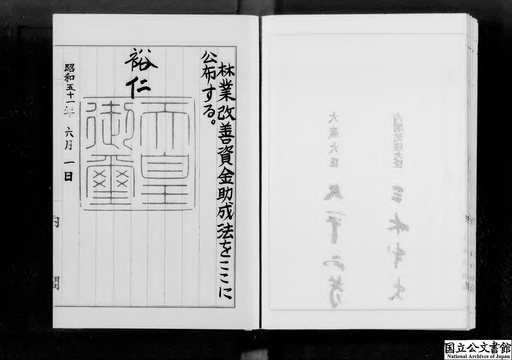 林業改善資金助成法をここに
公布する。
裕仁
天皇
御璽
昭和五十一年六月一日
内閣
内閣総理大臣 三木武夫
大蔵大臣 大平正芳
国立公文書館
National Archives of Japan